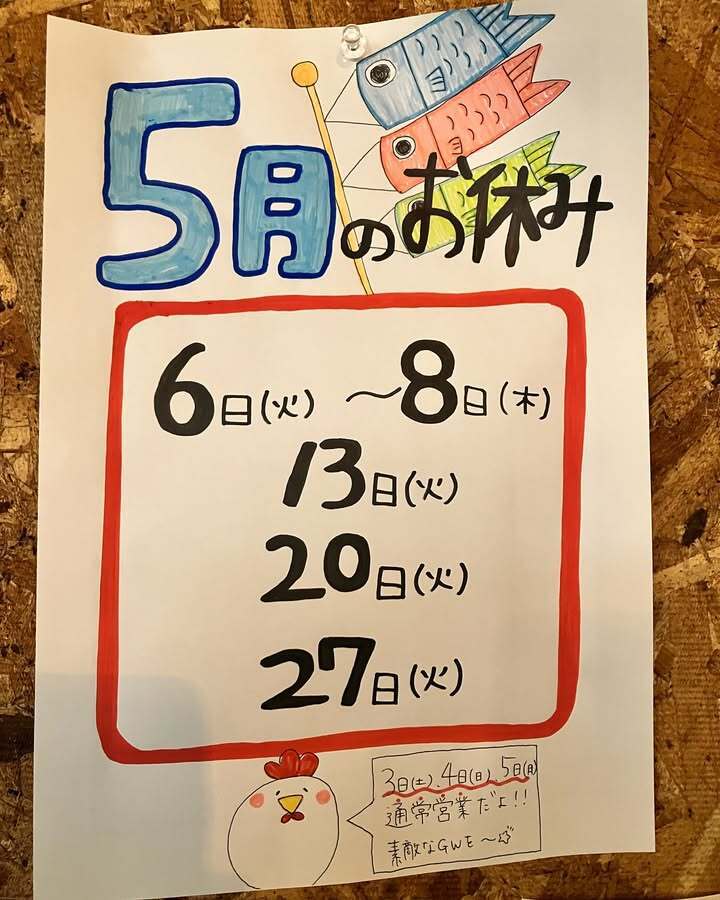 5月のお休み
6日(火) 〜8日(木)
13日(火)
20日(火)
27日(火)
3日(土).4日(日).5日(月)
通常営業だよ!!
素敵なGWを〜